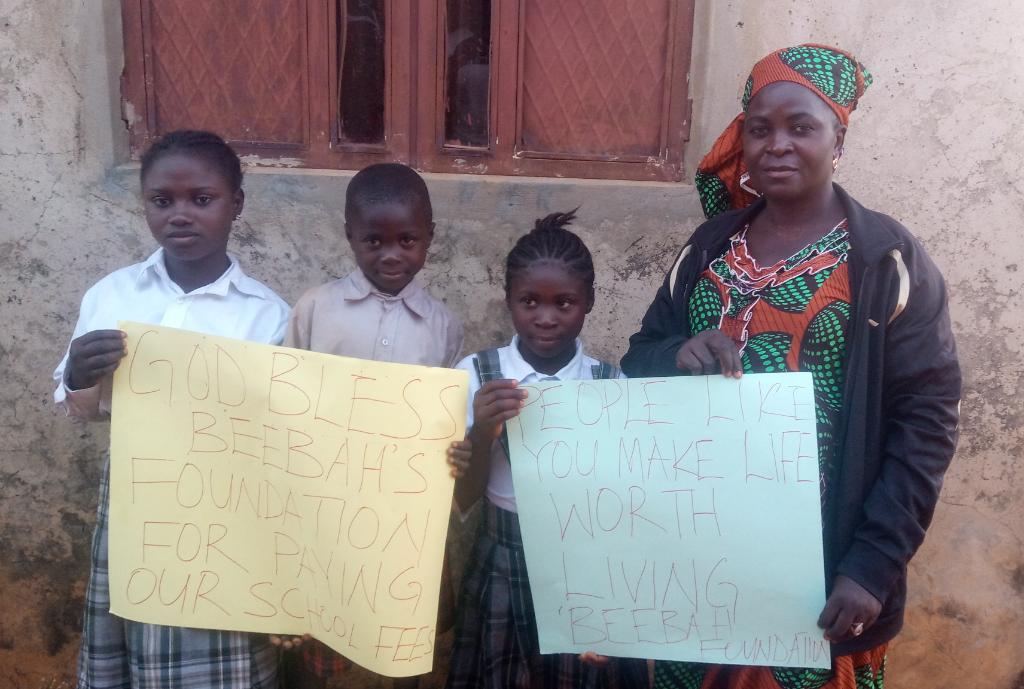 GOD BLESS
BEEBAH'S
FOUNDATION
FOR PAYING
OUR SCHOOL FEES
PEOPLE LIKE
YOU MAKE LIFE
WORTH
LIVING
'BEEBAH'
FOUNDATION